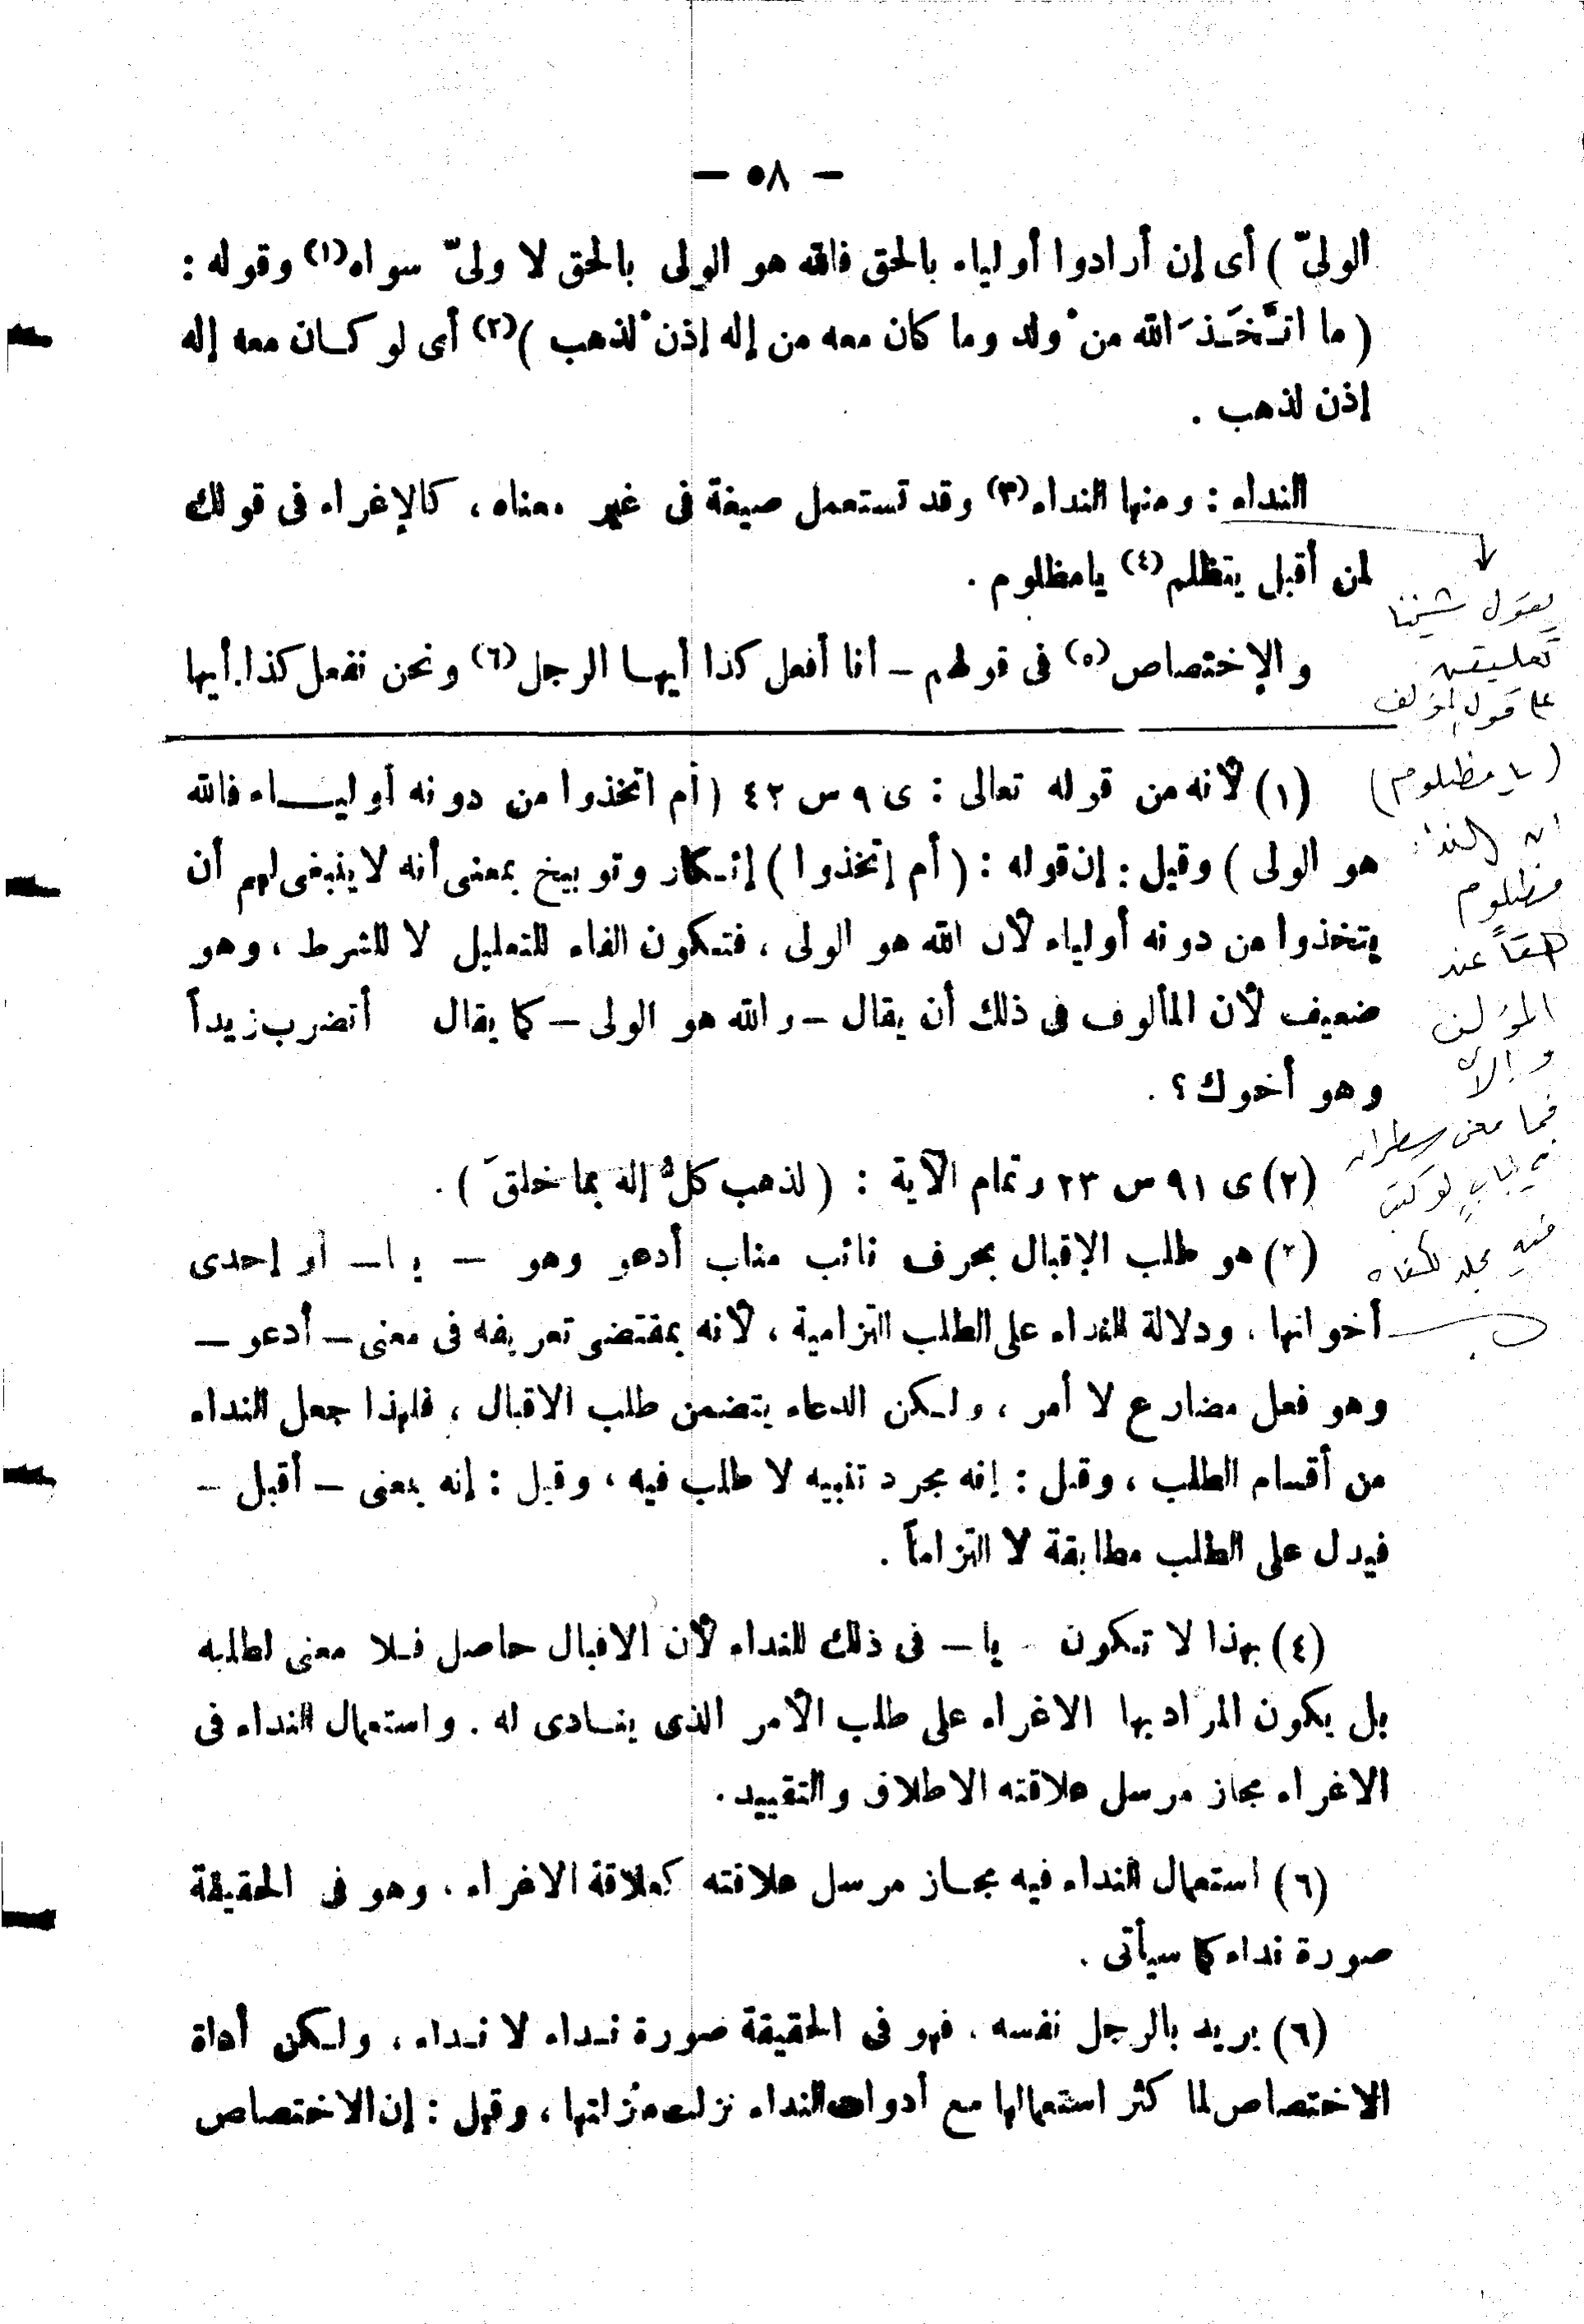 — ٥٨ —
الولىّ ) أى إن أرادوا أولياء بالحق فالله هو الولى بالحق لا ولىّ سواه(١) وقوله :
( ما اتَّخَذَ الله منْ ولد وما كان معه من إله إذنْ لذهب )(٢) أى لو كان معه إله
إذن لذهب .
النداء : ومنها النداء(٣) وقد تستعمل صيغة فى غير معناه ، كالإغراء فى قولك
لمن أقبل يتظلم(٤) يامظلوم .
والإختصاص(٥) فى قولهم – أنا أفعل كذا أيها الرجل(٦) ونحن نفعل كذا أيها
(١) لأنه من قوله تعالى : ى ٩ س ٤٢ ( أم اتخذوا من دونه أولياء فالله
هو الولى ) وقيل : إن قوله : ( أم إتخذوا ) إنكار وتوبيخ بمعنى أنه لا ينبغى لهم أن
يتخذوا من دونه أولياء لأن الله هو الولى ، فتكون الفاء للتعليل لا للشرط ، وهو
ضعيف لأن المألوف فى ذلك أن يقال – والله هو الولى – كما يقال أتضرب زيداً
وهو أخوك ؟ .
(٢) ى ٩١ س ٢٣ وتمام الآية : ( لذهب كلُّ إله بما خلقَ ) .
(٣) هو طلب الإقبال بحرف نائب مناب أدعو وهو – يا – أو إحدى
أخواتها ، ودلالة النداء على الطلب التزامية ، لأنه بمقتضى تعريفه فى معنى – أدعو –
وهو فعل مضارع لا أمر ، ولكن الدعاء يتضمن طلب الاقبال ، فلهذا جعل النداء
من أقسام الطلب ، وقيل : إنه مجرد تنبيه لا طلب فيه ، وقيل : إنه بمعنى – أقبل –
فيدل على الطلب مطابقة لا التزاماً .
(٤) بهذا لا تكون – يا – فى ذلك للنداء لأن الاقبال حاصل فلا معنى لطلبه
بل يكون المراد بها الاغراء على طلب الأمر الذى ينادى له . واستعمال النداء فى
الاغراء مجاز مرسل علاقته الاطلاق والتقييد .
(٦) استعمال النداء فيه مجاز مرسل علاقته كعلاقة الاغراء ، وهو فى الحقيقة
صورة نداء كما سيأتى .
(٦) يريد بالرجل نفسه ، فهو فى الحقيقة صورة نداء لا نداء ، ولكن أداة
الاختصاص لما كثر استعمالها مع أدوات النداء نزلت منزلتها ، وقيل : إن الاختصاص
يقول شيخنا
تعليقه
على قول المؤلف
(يا مظلوم)
ان النداء
مظلوم
حقاً عند
المؤلف
وإلا
فما معنى سطران
لو كتب
فيه مجلد لكفاه